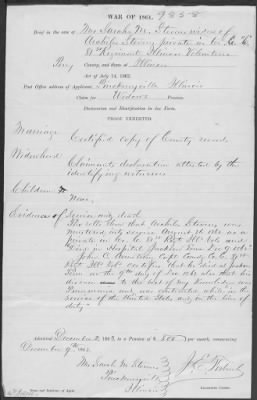 WAR OF 1861.
Brief in the case of Mrs Sarah M. Stevens widow of
Stevens private in Co. "C"
81st Regiment Illinois Volunteers
Perry County, and State of Illinois
Act of July 14, 1862.
Post Office address of Applicant, Illinois
Claim for Widows Pension.
Declaration and Identification in due Form.
PROOF EXHIBITED
Marriage Certified copy of County record
Widowhood Claimants declaration attested by the
identifying witnesses
Children
None
Evidence of Service and death
The rolls show that Stevens was
mustered into service August 26 1862 as a
private in Co. C 81st Regt Ills Vols and
died in Hospital Jackson Tenn Dec 9 1862
John C. Capt Comdg Co. C 81st
Regt Ills Vols Certifies that he died at Jackson
Tenn. on the 9th day of Dec 1862 also that his
disease to the best of my Knowledge was
Pneumonia and was contracted while in the
service of the United States and in the line of
duty"
Admitted December 2, 186 to a Pension of $8.00 per month, commencing
December 9th 1862.
Mrs Sarah M. Stevens
Illinois
Name and Residence of Agent.
Examining Clerk.